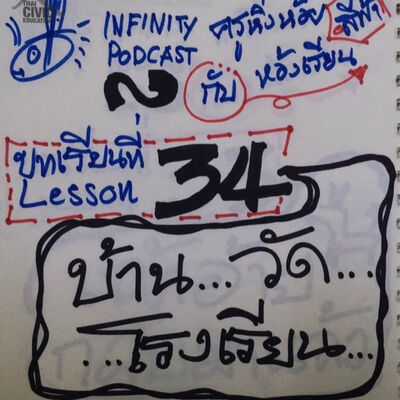 THAI CIVIC EDUCATION
INFINITY PODCAST
ครูหิ่งห้อย สีฟ้า
กับ ห้องเรียน
บทเรียนที่ 34
Lesson
บ้าน...วัด...
...โรงเรียน...